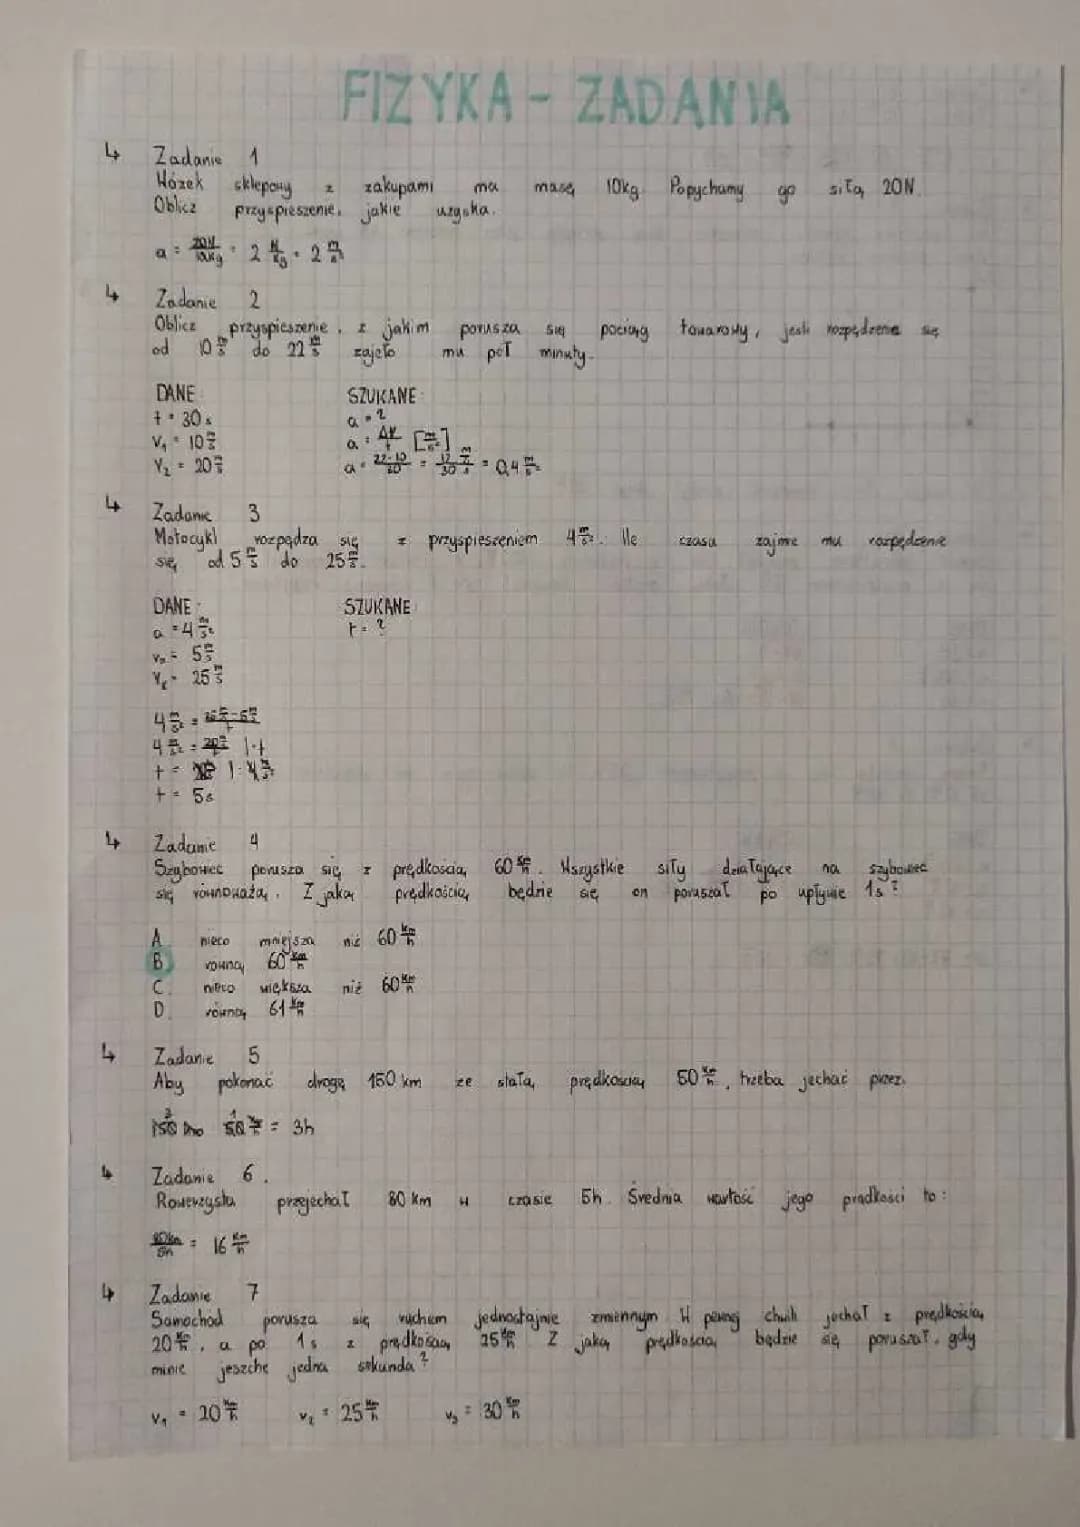 FIZYKA - ZADANIA
↳ Zadanie 1
Wózek sklepowy z zakupami ma masę 10kg. Popychamy go siłą 20N.
Oblicz przyspieszenie, jakie uzyska.
a = 20N/10kg = 2 N/kg = 2 m/s²
↳ Zadanie 2
Oblicz przyspieszenie, z jakim porusza się pociąg towarowy, jeśli rozpędzenie się
od 10 m/s do 22 m/s zajęło mu pół minuty.
DANE: SZUKANE:
t = 30s a = ?
V₁ = 10 m/s a = ΔV/t [m/s²]
V₂ = 20 m/s a = 22-10/30 = 12/30 m/s/s = 0,4 m/s²
↳ Zadanie 3
Motocykl rozpędza się z przyspieszeniem 4 m/s². Ile czasu zajmie mu rozpędzenie
się od 5 m/s do 25 m/s.
DANE: SZUKANE:
a = 4 m/s² t = ?
= 5 m/s
= 25 m/s
4 m/s² = 25 m/s - 5 m/s / t
4 m/s² = 20 m/s / t |·t
t = |: 4 m/s²
t = 5s
↳ Zadanie 4
Szybowiec porusza się z prędkością 60 km/h. Wszystkie siły działające na szybowiec
się równoważą. Z jaką prędkością będzie się on poruszał po upływie 1s?
A. nieco mniejszą niż 60 km/h
B. równą 60 km/h
C. nieco większą niż 60 km/h
D. równą 61 km/h
↳ Zadanie 5
Aby pokonać drogę 150 km ze stałą prędkością 50 km/h, trzeba jechać przez:
150 km : 50 km/h = 3h
↳ Zadanie 6.
Rowerzysta przejechał 80 km w czasie 5h. Średnia wartość jego prądkości to:
80km/5h = 16 km/h
↳ Zadanie 7
Samochód porusza się ruchem jednostajnie zmiennym. W pewnej chwili jechał z prędkością
20 km/h, a po 1s z prędkością 25 km/h. Z jaką prędkością będzie się poruszał, gdy
minie jeszcze jedna sekunda?
v₁ = 20 km/h v₂ = 25 km/h v₃ = 30 km/h